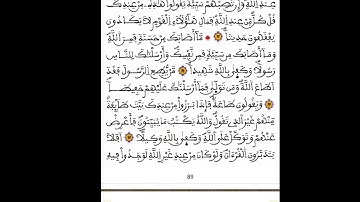 عِندِ اللَّهِ وَإِن تُصِبْهُمْ سَيِّئَةٌ يَقُولُوا هَٰذِهِ مِنْ عِندِكَ
قُلْ كُلٌّ مِّنْ عِندِ اللَّهِ فَمَالِ هَٰؤُلَاءِ الْقَوْمِ لَا يَكَادُونَ
يَفْقَهُونَ حَدِيثًا مَّا أَصَابَكَ مِنْ حَسَنَةٍ فَمِنَ اللَّهِ
وَمَا أَصَابَكَ مِن سَيِّئَةٍ فَمِن نَّفْسِكَ وَأَرْسَلْنَٰكَ لِلنَّاسِ
رَسُولًا وَكَفَىٰ بِاللَّهِ شَهِيدًا مَّنْ يُطِعِ الرَّسُولَ فَقَدْ
أَطَاعَ اللَّهَ وَمَن تَوَلَّىٰ فَمَا أَرْسَلْنَٰكَ عَلَيْهِمْ حَفِيظًا
وَيَقُولُونَ طَاعَةٌ فَإِذَا بَرَزُوا مِنْ عِندِكَ بَيَّتَ طَائِفَةٌ
مِّنْهُمْ غَيْرَ الَّذِي تَقُولُ وَاللَّهُ يَكْتُبُ مَا يُبَيِّتُونَ فَأَعْرِضْ
عَنْهُمْ وَتَوَكَّلْ عَلَى اللَّهِ وَكَفَىٰ بِاللَّهِ وَكِيلًا أَفَلَا
يَتَدَبَّرُونَ الْقُرْءَانَ وَلَوْ كَانَ مِنْ عِندِ غَيْرِ اللَّهِ لَوَجَدُوا فِيهِ
89